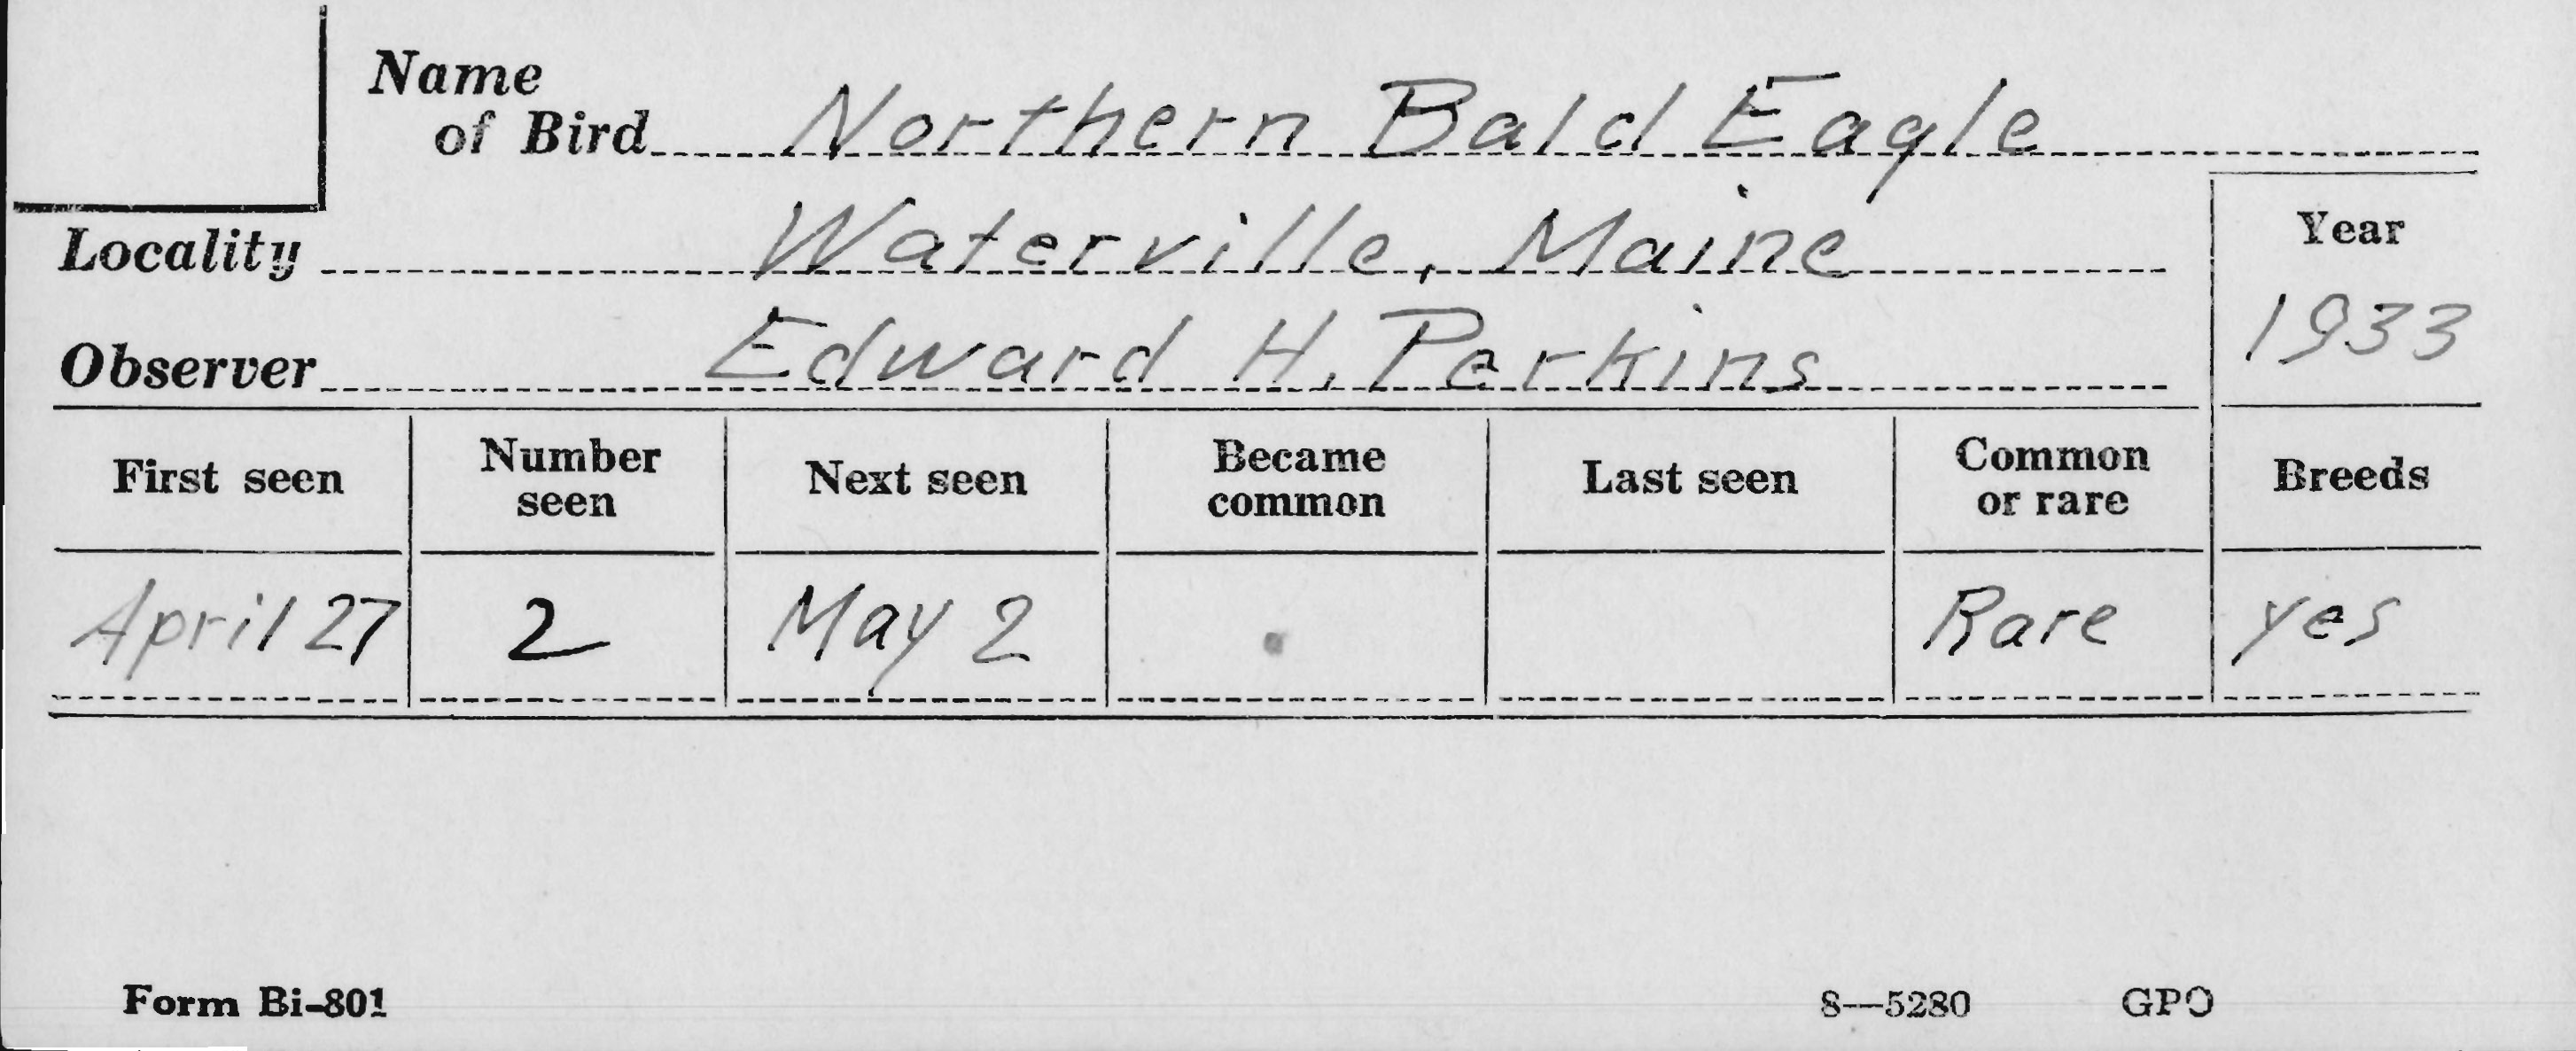 Name
of Bird Northern Bald Eagle
Locality Waterville, Maine
Year
Observer Edward H. Perkins
1933
First seen Number seen Next seen Became common Last seen Common or rare Breeds
April 27 2 May 2 Rare yes
Form Bi-801 8—5280 GPO